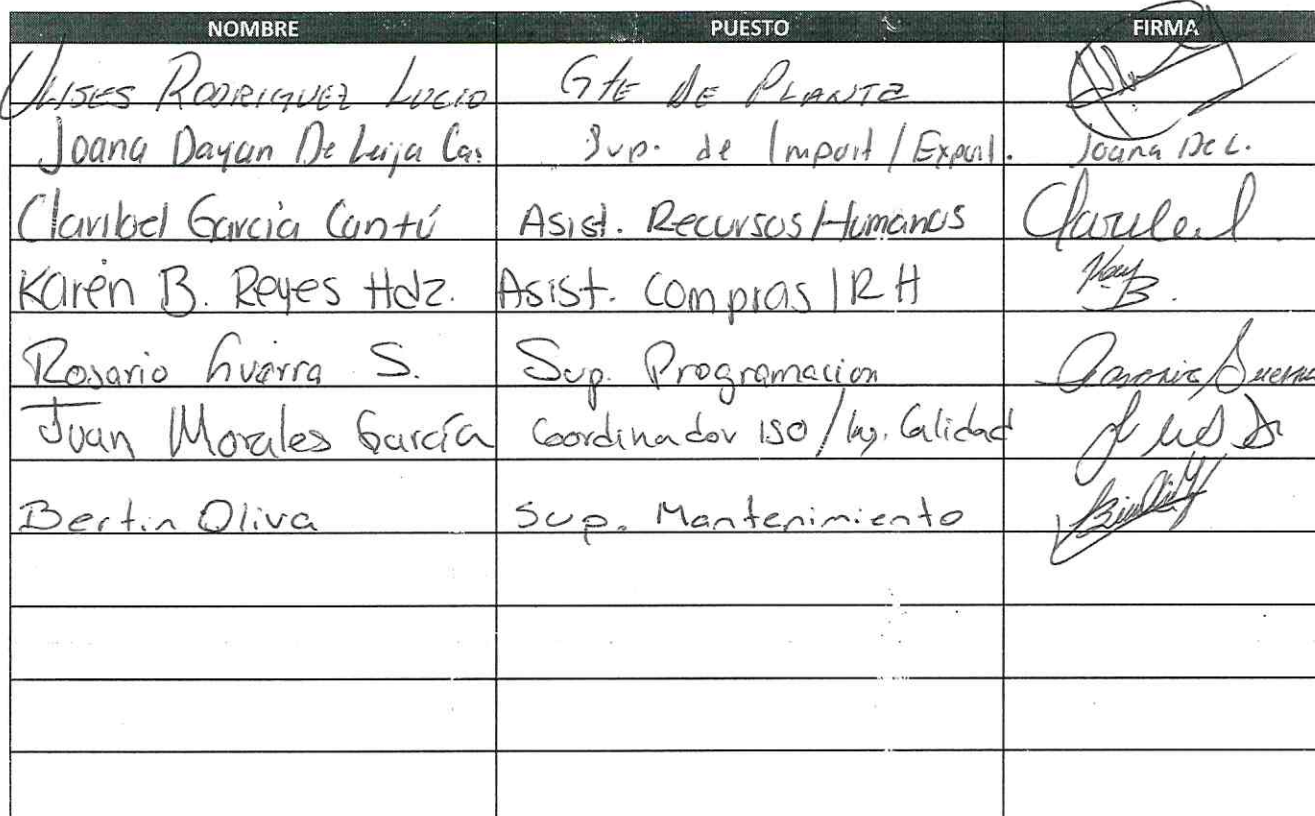 NOMBRE PUESTO FIRMA
ULISES RODRIGUEZ LUCIO GTE DE PLANTA
Joana Dayan De Leija Cas. Sup. de Import/Export. Joana De L.
Claribel García Cantú Asist. Recursos Humanos
Karen B. Reyes Hdz. Asist. Compras/RH
Rosario Guerra S. Sup. Programacion
Juan Morales García Coordinador ISO/Ing. Calidad
Bertin Oliva Sup. Mantenimiento